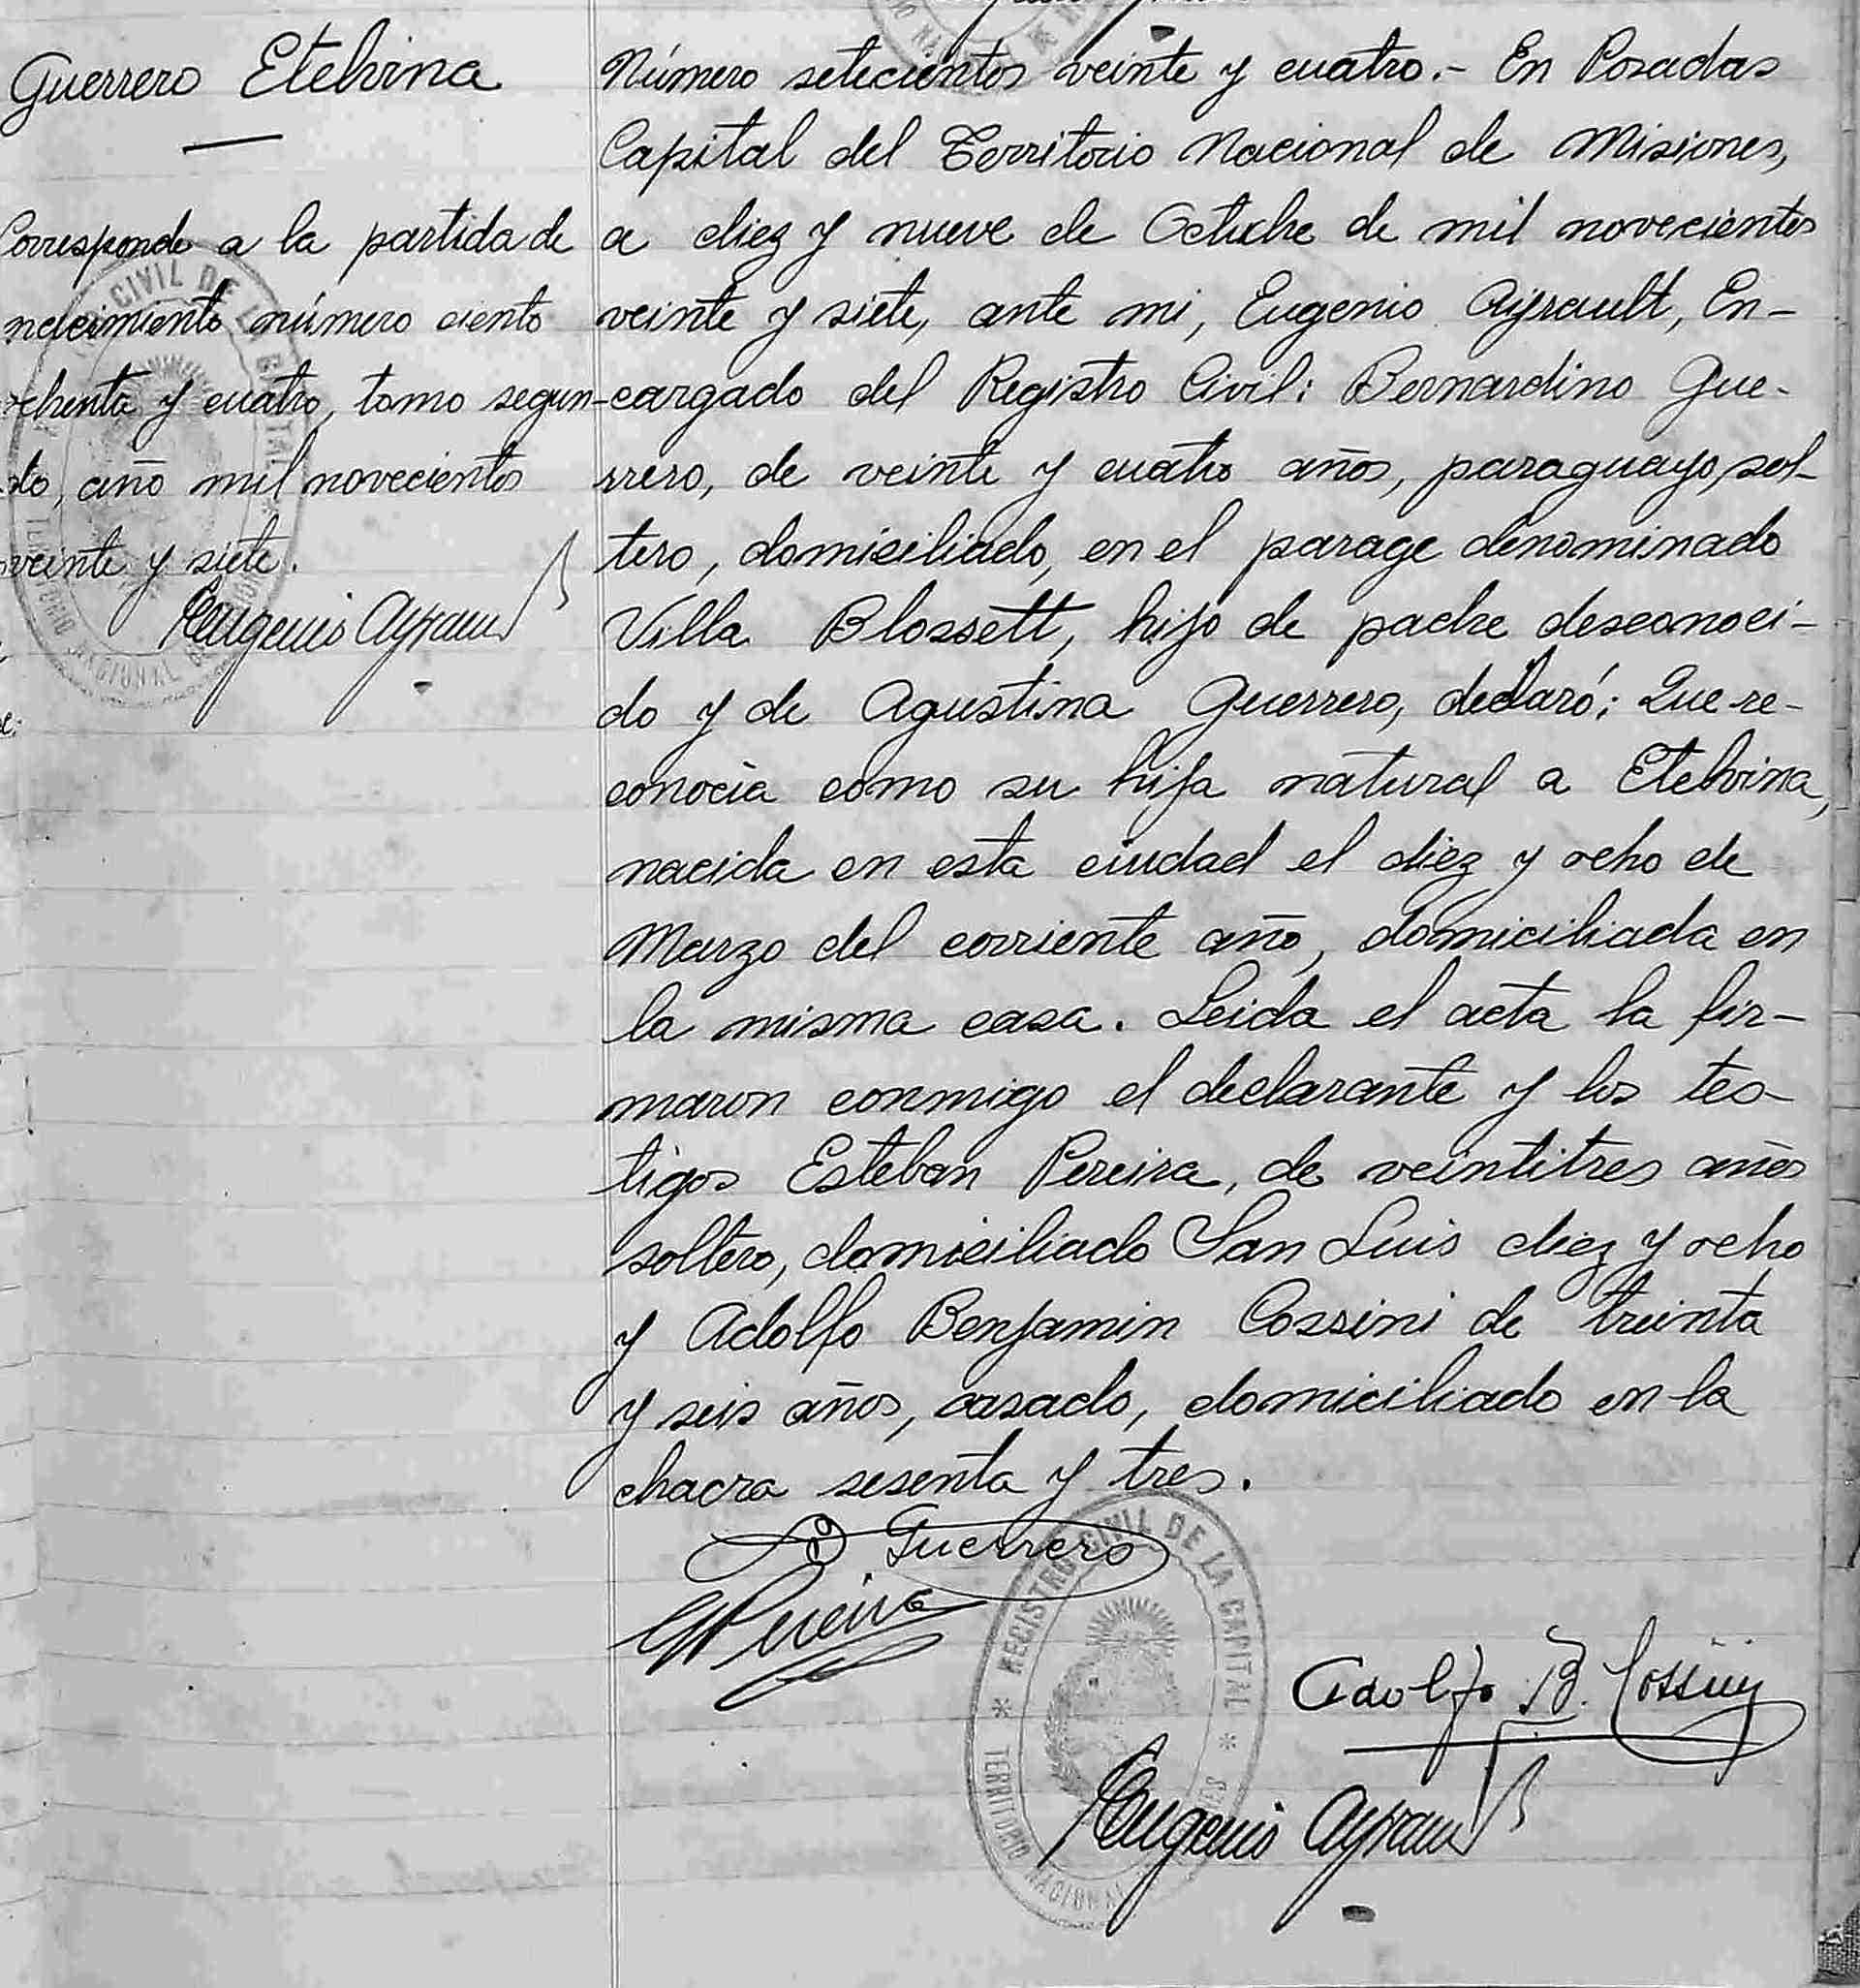 Guerrero Etelvina
Corresponde a la partida de
nacimiento número ciento
ochenta y cuatro, tomo segun-
do, año mil novecientos
veinte y siete.
Eugenio Ayrault
Número setecientos veinte y cuatro.- En Posadas
Capital del Territorio Nacional de Misiones,
a diez y nueve de Octubre de mil novecientos
veinte y siete, ante mi, Eugenio Ayrault, En-
cargado del Registro Civil: Bernardino Gue-
rrero, de veinte y cuatro años, paraguayo, sol-
tero, domiciliado, en el parage denominado
Villa Blossett, hijo de padre desconoci-
do y de Agustina Guerrero, declaró: Que re-
conocía como su hija natural a Etelvina,
nacida en esta ciudad el diez y ocho de
Marzo del corriente año, domiciliada en
la misma casa. Leida el acta la fir-
maron conmigo el declarante y los tes-
tigos Esteban Pereira, de veintitres años
soltero, domiciliado San Luis diez y ocho
y Adolfo Benjamin Cossini de treinta
y seis años, casado, domiciliado en la
chacra sesenta y tres.
B Guerrero
EPereira
Adolfo B. Cossini
Eugenio Ayrault
REGISTRO CIVIL DE LA CAPITAL
TERRITORIO NACIONAL